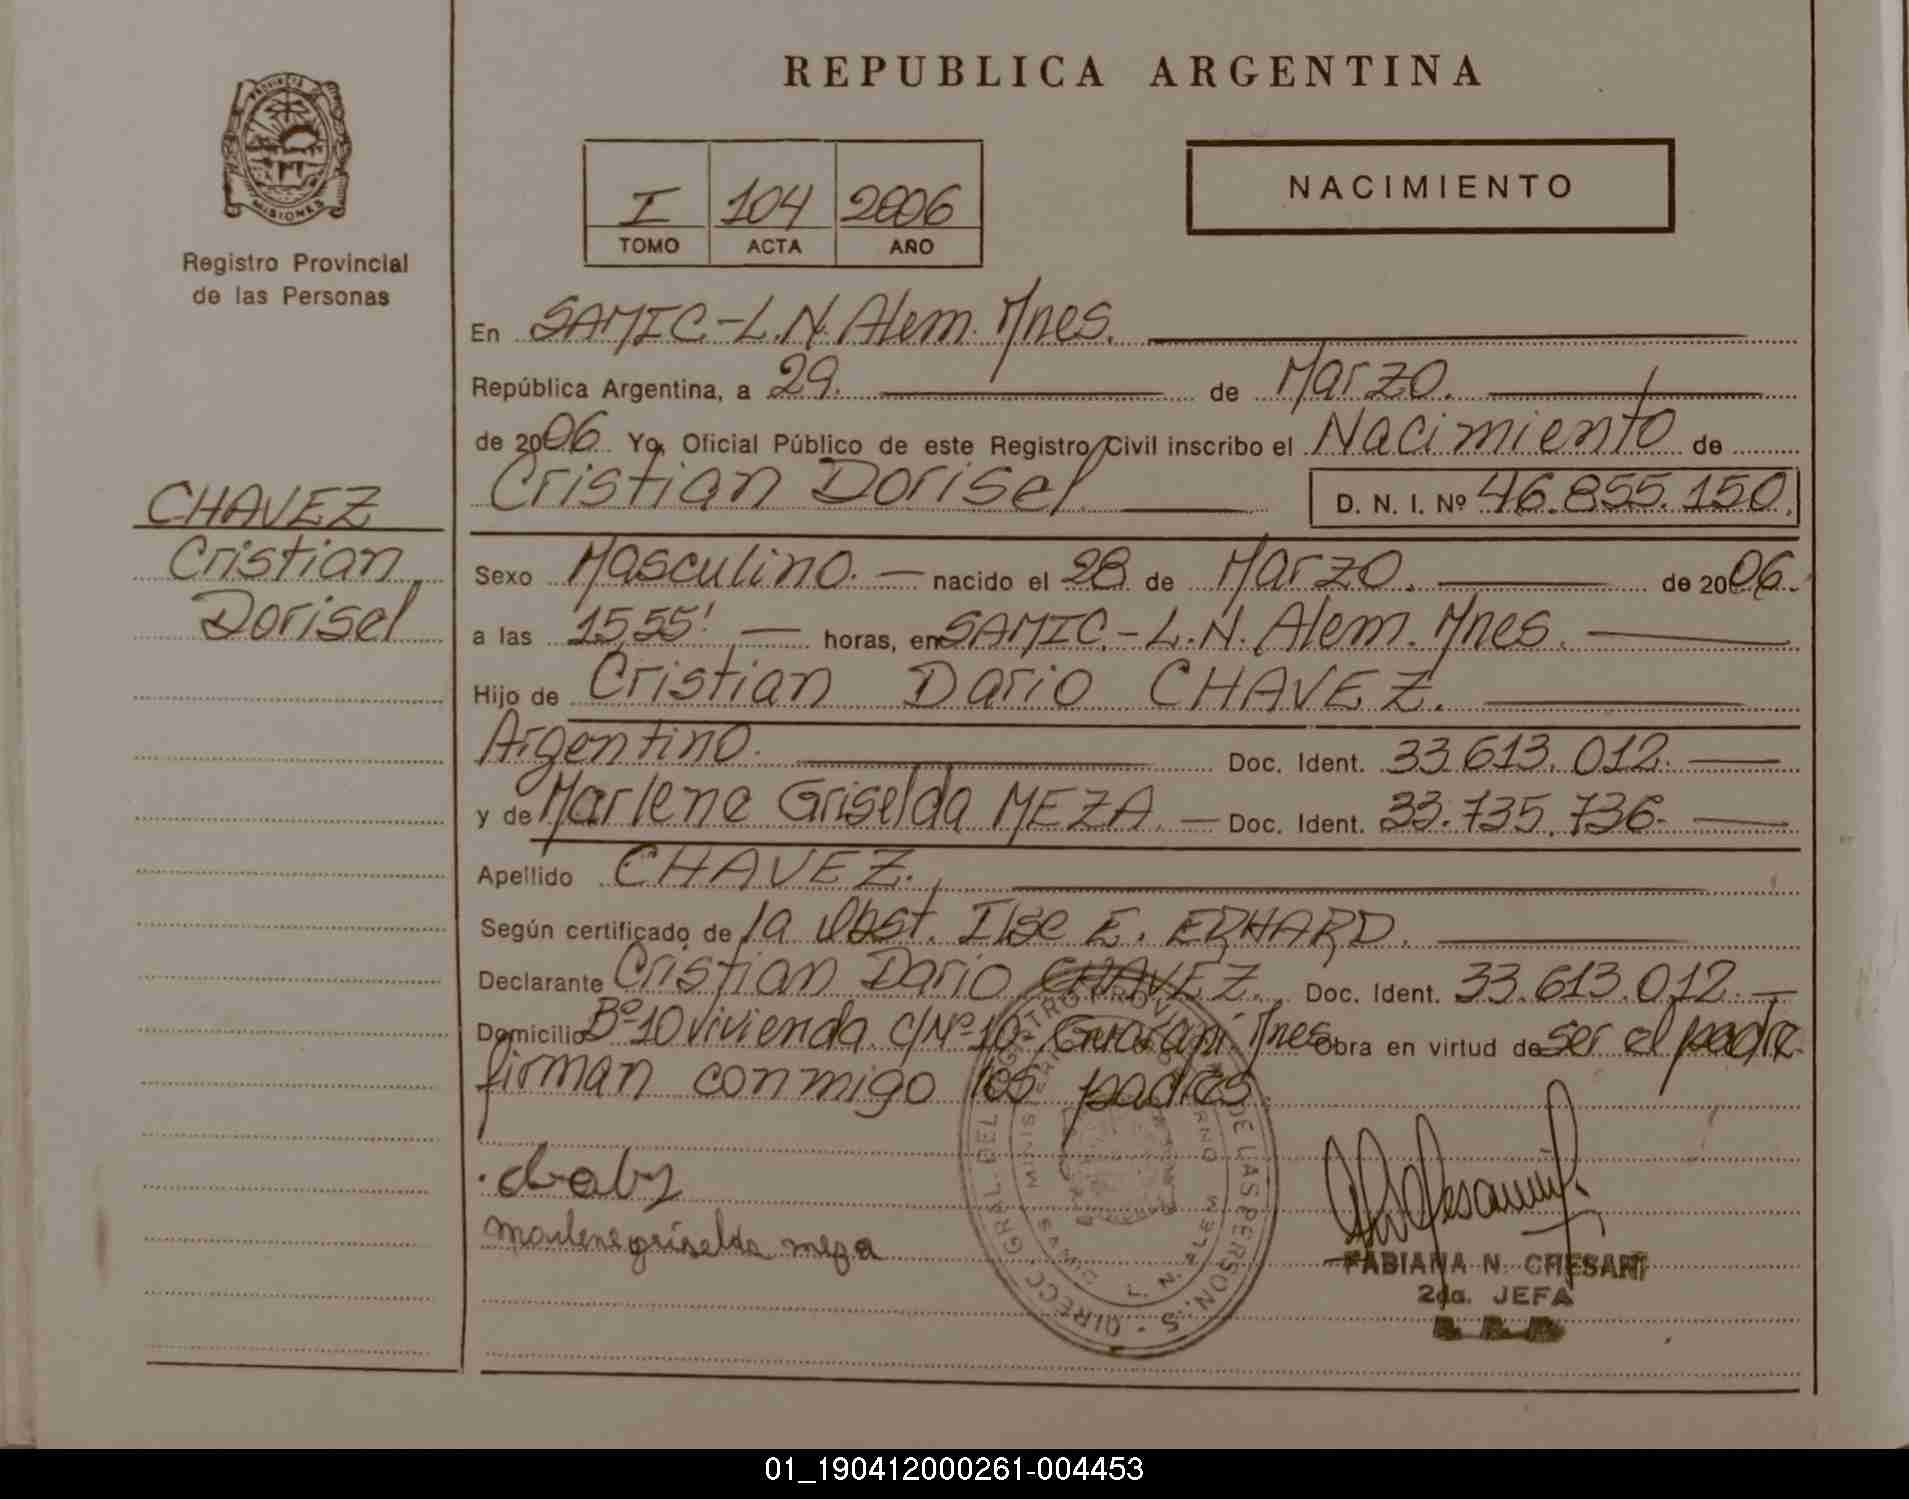 REPUBLICA ARGENTINA
PROVINCIA
MISIONES
Registro Provincial
de las Personas
I 104 2006
TOMO ACTA AÑO
NACIMIENTO
En SAMIC-L.N. Alem. Mnes.
República Argentina, a 29. de Marzo.
de 2006 Yo, Oficial Público de este Registro Civil inscribo el Nacimiento de
Cristian Dorisel D. N. I. Nº 46.855.150.
CHAVEZ
Cristian
Dorisel
Sexo Masculino. nacido el 28 de Marzo. de 2006.
a las 15,55' horas, en SAMIC.-L.N. Alem. Mnes.
Hijo de Cristian Dario CHAVEZ.
Argentino. Doc. Ident. 33.613.012.
y de Marlene Griselda MEZA. Doc. Ident. 33.735.736.
Apellido CHAVEZ.
Según certificado de la Obst. Ilse E. ERHARD.
Declarante Cristian Dario CHAVEZ. Doc. Ident. 33.613.012.
Domicilio Bº 10 vivienda c/Nº 10- Guaraní Mnes Obra en virtud de ser el padre
firman conmigo los padres
marlene griselda meza
DIRECC. GRAL. DEL REGISTRO PROVINCIAL DE LAS PERSONAS
L. N. ALEM
FABIANA N. CHESANI
2da. JEFA
01_190412000261-004453